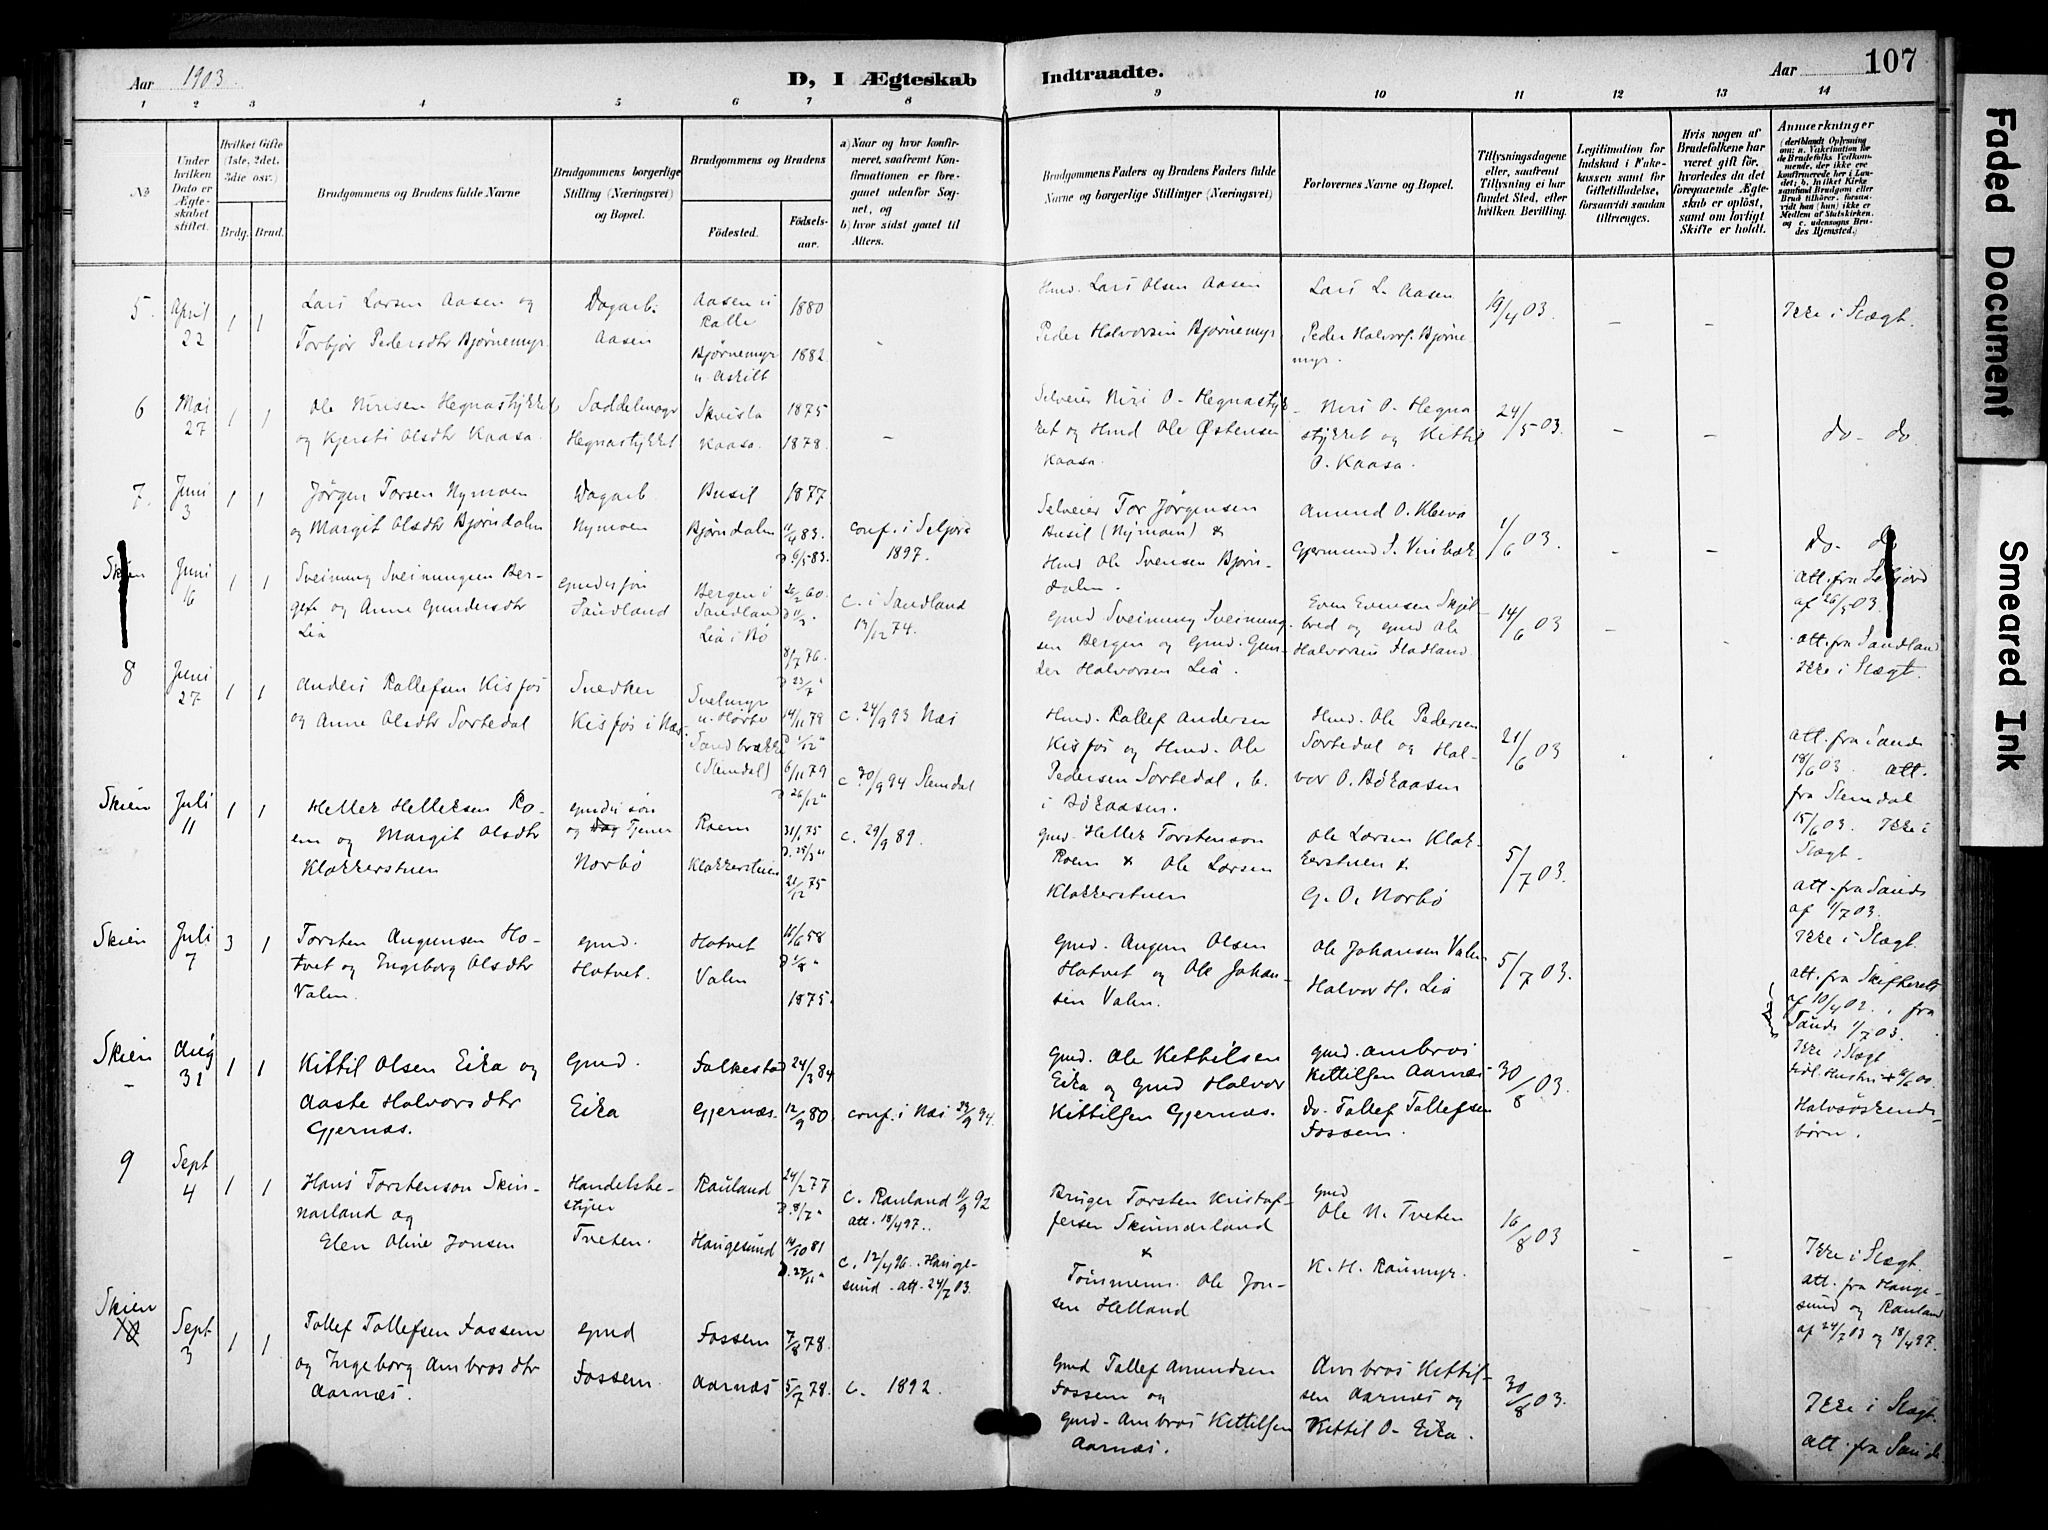 Aar 1903. D, I Ægteskab Indtraadte. Aar 107
1 2 3 4 5 6 7 8 9 10 11 12 13 14
No
Under hvilken Dato er Ægteskabet stiftet.
Hvilket Gifte (1ste, 2det, 3die osv.)
Brdg. Brud.
Brudgommens og Brudens fulde Navne
Brudgommens borgerlige Stilling (Næringsvei) og Bopæl.
Brudgommens og Brudens
Födested. Födselsaar.
a) Naar og hvor konfirmeret, saafremt Konfirmationen er foregaaet udenfor Sognet, og
b) hvor sidst gaaet til Alters.
Brudgommens Faders og Brudens Faders fulde Navne og borgerlige Stillinger (Næringsvei)
Forlovernes Navne og Bopæl.
Tillysningsdagene eller, saafremt Tillysning ei har fundet Sted, efter hvilken Bevilling.
Legitimation for Indskud i Enkekassen samt for Giftetilladelse, forsaavidt saadan tiltrænges.
Hvis nogen af Brudefolkene har været gift för, hvorledes da det foregaaende Ægteskab er oplöst, samt om lovligt Skifte er holdt.
Anmærkninger
(deriblandt Oplysning om: a. Vakcination for de Brudefolks Vedkommende, der ikke ere konfirmerede her i Landet; b. hvilket Kirkesamfund Brudgom eller Brud tilhörer, forsaavidt han (hun) ikke er Medlem af Statskirken, og c. udensogns Brudes Hjemsted.)
5. April 22 1 1
Lars Larsen Aasen og
Torbjør Pedersdtr Bjørnemyr.
Dagarb.
Aasen
Aasen u
Kalle
1880
Bjørnemyr
u. Askilt
1882
-
Hmd. Lars Olsen Aasen
Peder Halvorsen Bjørnemyr.
Lars L. Aasen
Peder Halvors. Bjørne
myr.
19/4 03.
- -
Ikke i Slægt.
6 Mai 27 1 1
Ole Nirisen Hegnastykket
og Kjersti Olsdtr Kaasa.
Saddelmager
Hegnastykket
Skvisla
Kaasa.
1875
1878.
-
Selveier Niri O. Hegnastyk-
ket og Hmd Ole Østensen
Kaasa.
Niri O. Hegna
stykket og Kittil
O. Kaasa.
24/5 03.
- -
do- do
7. Juni 3 1 1
Jørgen Torsen Nymoen
og Margit Olsdtr Bjørndalen
Dagarb.
Nymoen
Busil
Bjørndalen
1877
11/4 83.
D 6/5 83.
conf. i Seljord
1897.
Selveier Tor Jørgensen
Busil (Nymoen) &
Hmd Ole Svensen Bjørn-
dalen.
Amund O. Kleva
Gjermund S. Vinbæk
1/6 03.
- -
do- do
att. fra Seljord
af 26/5 03.
Skien Juni 16 1 1
Sveinung Sveinungsen Ber-
gen og Anne Gundersdtr
Lia
Gmdessøn
Sandland
Bergen i
Sandland
Lia i Bø
26/2 60.
8/7 76.
D 23/7 "
C. i Sandland
13/12 74.
Gmd Sveinung Sveinung-
sen Bergen og Gmd. Gun-
der Halvorsen Lia.
Even Evensen Skjel-
bred og Gmd Ole
Halvorsen Stadland
14/6 03
- -
att. fra Sandland
Ikke i Slægt.
8 Juni 27 1 1
Anders Rollefsen Kisfos
og Anne Olsdtr Sortedal
Snedker
Kisfos i Næs
Svelmyr
u. Hørbø
Sandbrække
(Slemdal)
14/11 78
D 1/12 "
6/11 79
D 26/12 "
C. 24/9 93 Næs
C. 30/9 94 Slemdal
Hmd. Rollef Andersen
Kisfos og Hmd. Ole
Pedersen Sortedal, b.
i Bøkaasen.
Hmd. Ole Pedersen
Sortedal og Hal-
vor O. Bøkaasen
21/6 03
att. fra Sands
18/6 03. att.
fra Slemdal
15/6 03. Ikke i
Slægt.
Skien Juli 11 1 1
Helleк Helleksen Ro-
em og Margit Olsdtr
Klokkerstuen
Gmdessøn
og Tjener
Norbø
Roem
Klokkerstuen
31/1 75
D. 28/3 "
21/12 75
C. 29/9 89.
Gmd. Hellek Torstenson
Roem & Ole Larsen
Klokkerstuen
Ole Larsen Klok-
kerstuen &
G. O. Norbø
5/7 03.
att. fra Sands
af 1/7 03.
Ikke i Slægt.
Skien Juli 7 3 1
Torsten Augunsen Ho-
tvet og Ingeborg Olsdtr
Valen.
Gmd.
Hotvet.
Hotvet
Valen
11/6 58
D 1/8 "
1875.
Gmd. Augun Olsen
Hotvet og Ole Johan-
sen Valen.
Ole Johansen Valen
Halvor H. Lia
5/7 03.
att. fra Skifteretten
af 10/4 02., fra
Sands 1/7 03.
Ikke i Slægt
tidl. Hustru + 6/6 00.
Skien - Aug 31 1 1
Kittil Olsen Eika og
Aaste Halvorsdtr
Gjernæs.
Gmd.
Eika
Folkestad
Gjernæs.
24/3 84
12/9 80
conf. i Næs 30/9 94.
Gmd. Ole Kittilsen
Eika og Gmd Halvor
Kittilsen Gjernæs.
Gmd. Ambros
Kittilsen Aarnæs
do. Tollef Tollefsen
Fossem.
30/8 03.
Halvsøskende-
børn.
9 Sept 4 1 1
Hans Torstenson Skin-
narland og
Elen Oline Jonsen
Handelsbe-
styrer
Tveten.
Rauland
Haugesund
24/2 77
D. 8/7 "
14/10 81
D. 27/11 "
C. Rauland 11/9 92
att. 18/4 97..
C. 12/4 96. Hauge-
sund. att. 24/7 03.
Bruger Torsten Kristof-
fersen Skinnarland
&
Tømmerm. Ole Jon-
sen Helland
Gmd
Ole N. Tveten
K. H. Raumyr.
16/8 03
- -
Ikke i Slægt.
att. fra Hauge-
sund og Rauland
af 24/7 03 og 18/4 97.
Skien 10 Sept 3 1 1
Tollef Tollefsen Fossem
og Ingeborg Ambrosdtr
Aarnæs.
Gmd
Fossem.
Fossem
Aarnæs
7/8 78.
5/7 78.
C. 1892.
Gmd Tollef Amundsen
Fossem og
Gmd. Ambros Kittilsen
Aarnæs.
Ambros Kittil-
sen Aarnæs og
Kittil O. Eika.
30/8 03.
Ikke i Slægt.
att. fra Sande
Faded Document
Smeared Ink